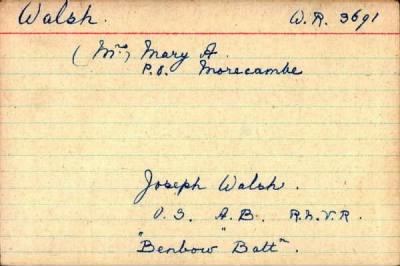 Walsh. W.R. 3691
(Mrs) Mary A.
P.O. Morecambe
Joseph Walsh.
O.S. A.B. R.N.V.R.
"Benbow" Battn.